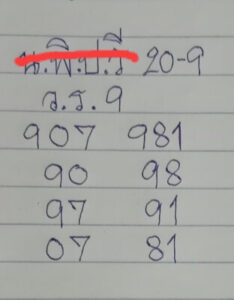 น.พิ.ป.วี 20-9
ว.ร.9
907 981
90 98
97 91
07 81